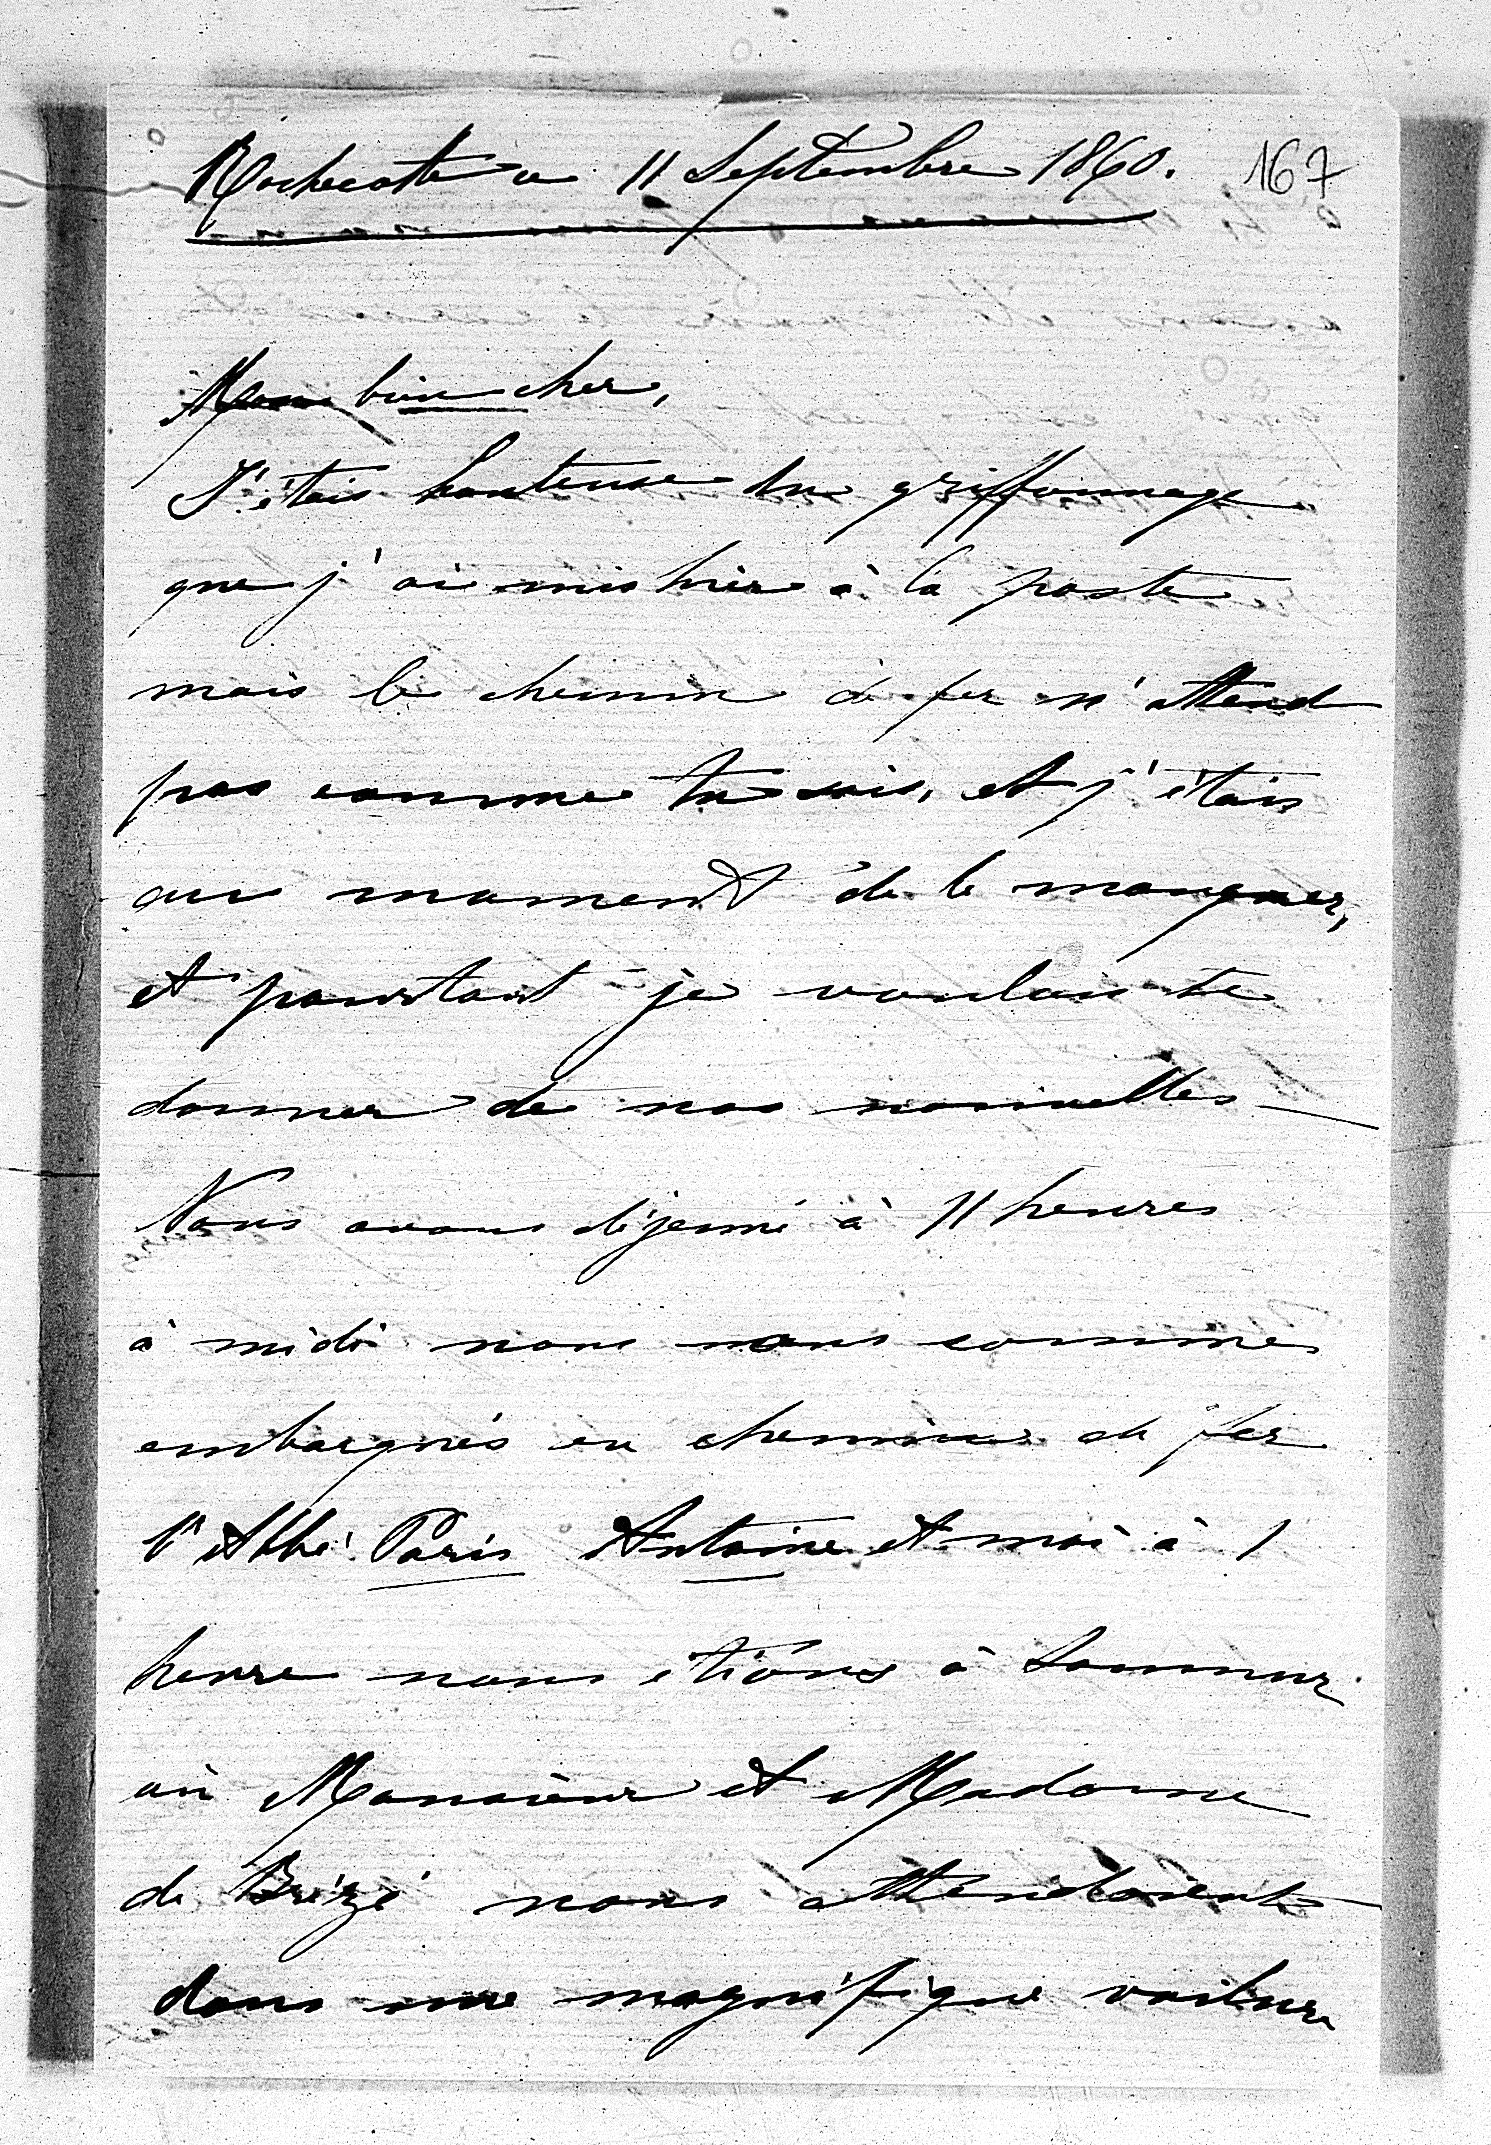 Rochecotte ce 11 Septembre 1860. 167
Mon bien cher,
J'étais honteuse du griffonnage
que j'ai mis hier à la poste
mais le chemin de fer n'attend
pas comme tu sais, et j'étais
au moment de le manquer,
et pourtant je voulais te
donner de nos nouvelles
Nous avons déjeuné à 11 heures
à midi nous nous sommes
embarqués en chemin de fer
l'Abbé Paris Antoine et moi à 1
heure nous étions à Saumur
où Monsieur et Madame
de Brézé nous attendaient
dans une magnifique voiture